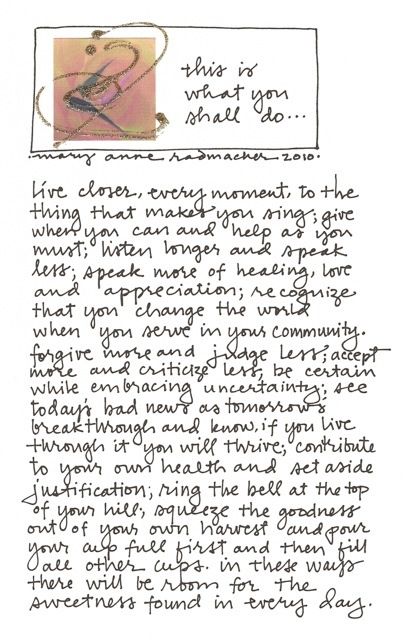 this is
what you
shall do...
mary anne radmacher 2010.
live closer, every moment, to the
thing that makes you sing; give
when you can and help as you
must; listen longer and speak
less; speak more of healing, love
and appreciation; recognize
that you change the world
when you serve in your community.
forgive more and judge less; accept
more and criticize less; be certain
while embracing uncertainty; see
today's bad news as tomorrow's
breakthrough and know, if you live
through it you will thrive; contribute
to your own health and set aside
justification; ring the bell at the top
of your hill; squeeze the goodness
out of your own harvest and pour
your cup full first and then fill
all other cups. in these ways
there will be room for the
sweetness found in every day.